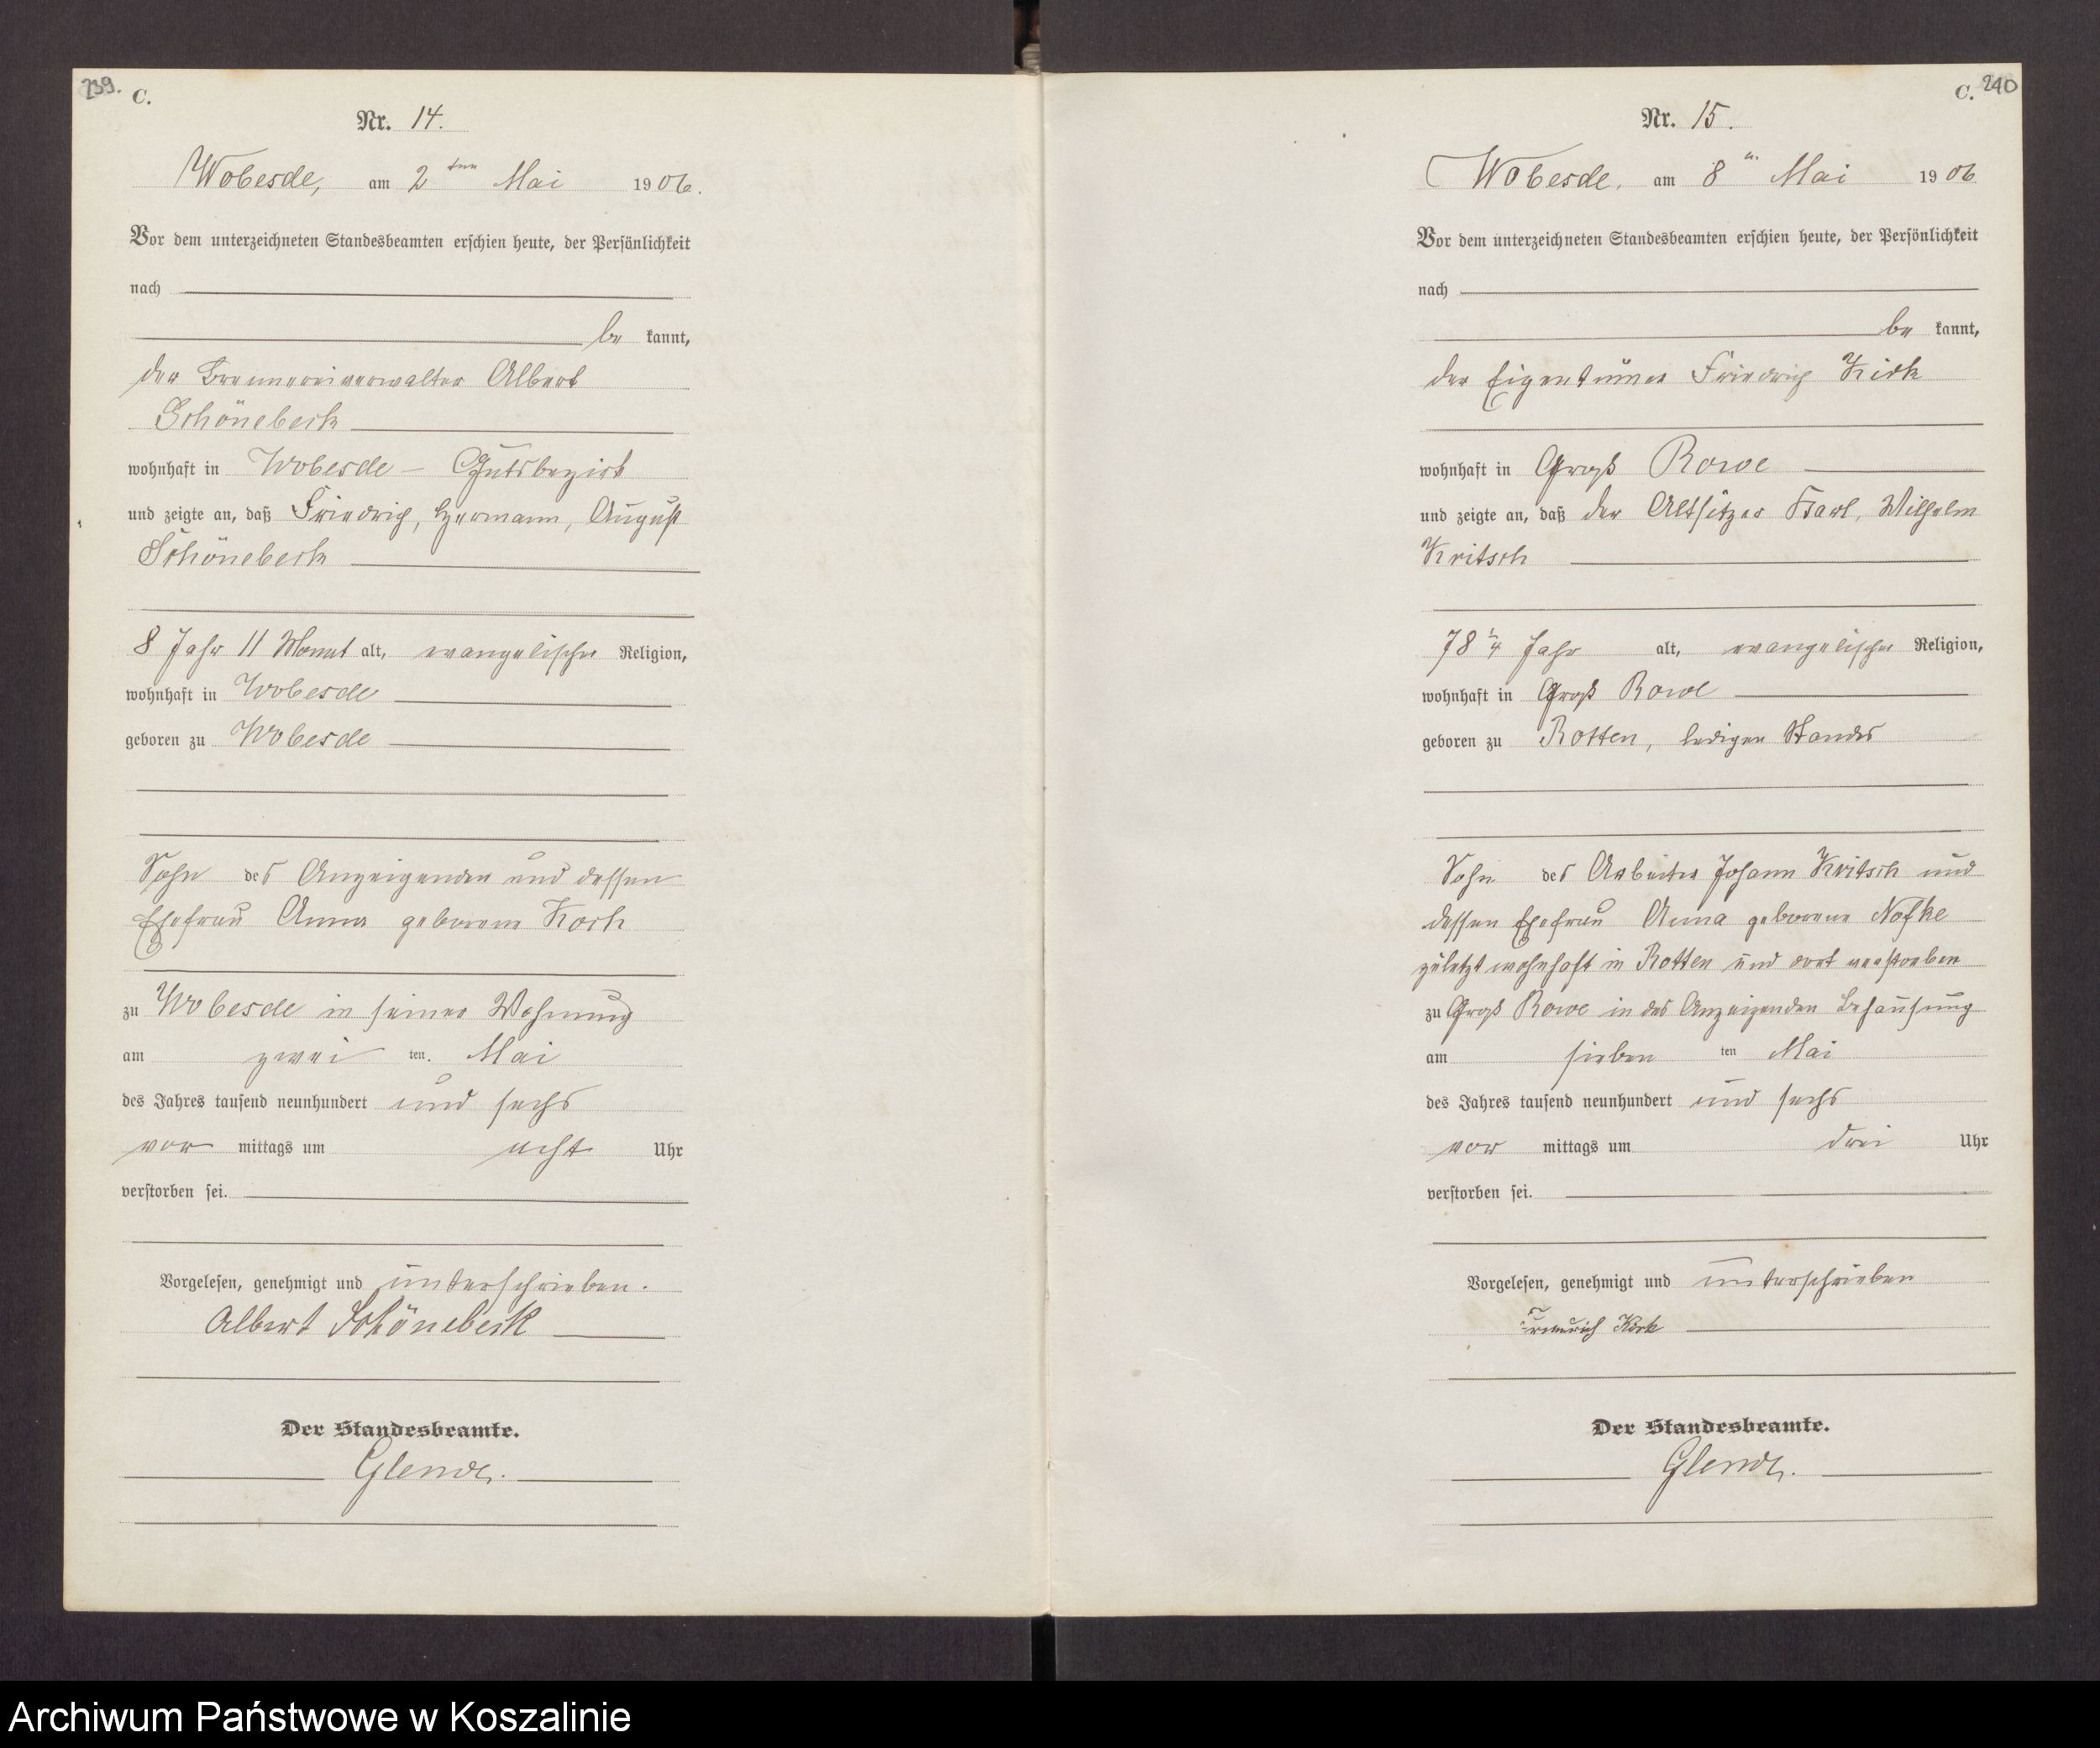 239.
C.
Nr. 14.
Wobesde, am 2ten Mai 1906.
Vor dem unterzeichneten Standesbeamten erschien heute, der Persönlichkeit
nach
be kannt,
der Brennereiverwalter Albert
Schönebeck
wohnhaft in Wobesde – Gutsbezirk
und zeigte an, daß Friedrich, Hermann, August
Schönebeck
8 Jahr 11 Monat alt, evangelischer Religion,
wohnhaft in Wobesde
geboren zu Wobesde
Sohn des Anzeigenden und dessen
Ehefrau Anna geborene Koch
zu Wobesde in seiner Wohnung
am zwei ten. Mai
des Jahres tausend neunhundert und sechs
vor mittags um acht Uhr
verstorben sei.
Vorgelesen, genehmigt und unterschrieben.
Albert Schönebeck
Der Standesbeamte.
C. 240
Nr. 15.
Wobesde, am 8n Mai 1906
Vor dem unterzeichneten Standesbeamten erschien heute, der Persönlichkeit
nach
be kannt,
der Eigentümer Friedrich
wohnhaft in Groß Rowe
und zeigte an, daß der Altsitzer Karl, Wilhelm
Kritsch
78 1/4 Jahr alt, evangelischer Religion,
wohnhaft in Groß Rowe
geboren zu Rotten, ledigen Standes
Sohn des Arbeiter Johann Kritsch und
dessen Ehefrau Anna geborene Nofke
zuletzt wohnhaft in Rotten und dort verstorben
zu Groß Rowe in des Anzeigenden Behausung
am sieben ten Mai
des Jahres tausend neunhundert und sechs
vor mittags um drei Uhr
verstorben sei.
Vorgelesen, genehmigt und unterschrieben
Der Standesbeamte.
Archiwum Państwowe w Koszalinie